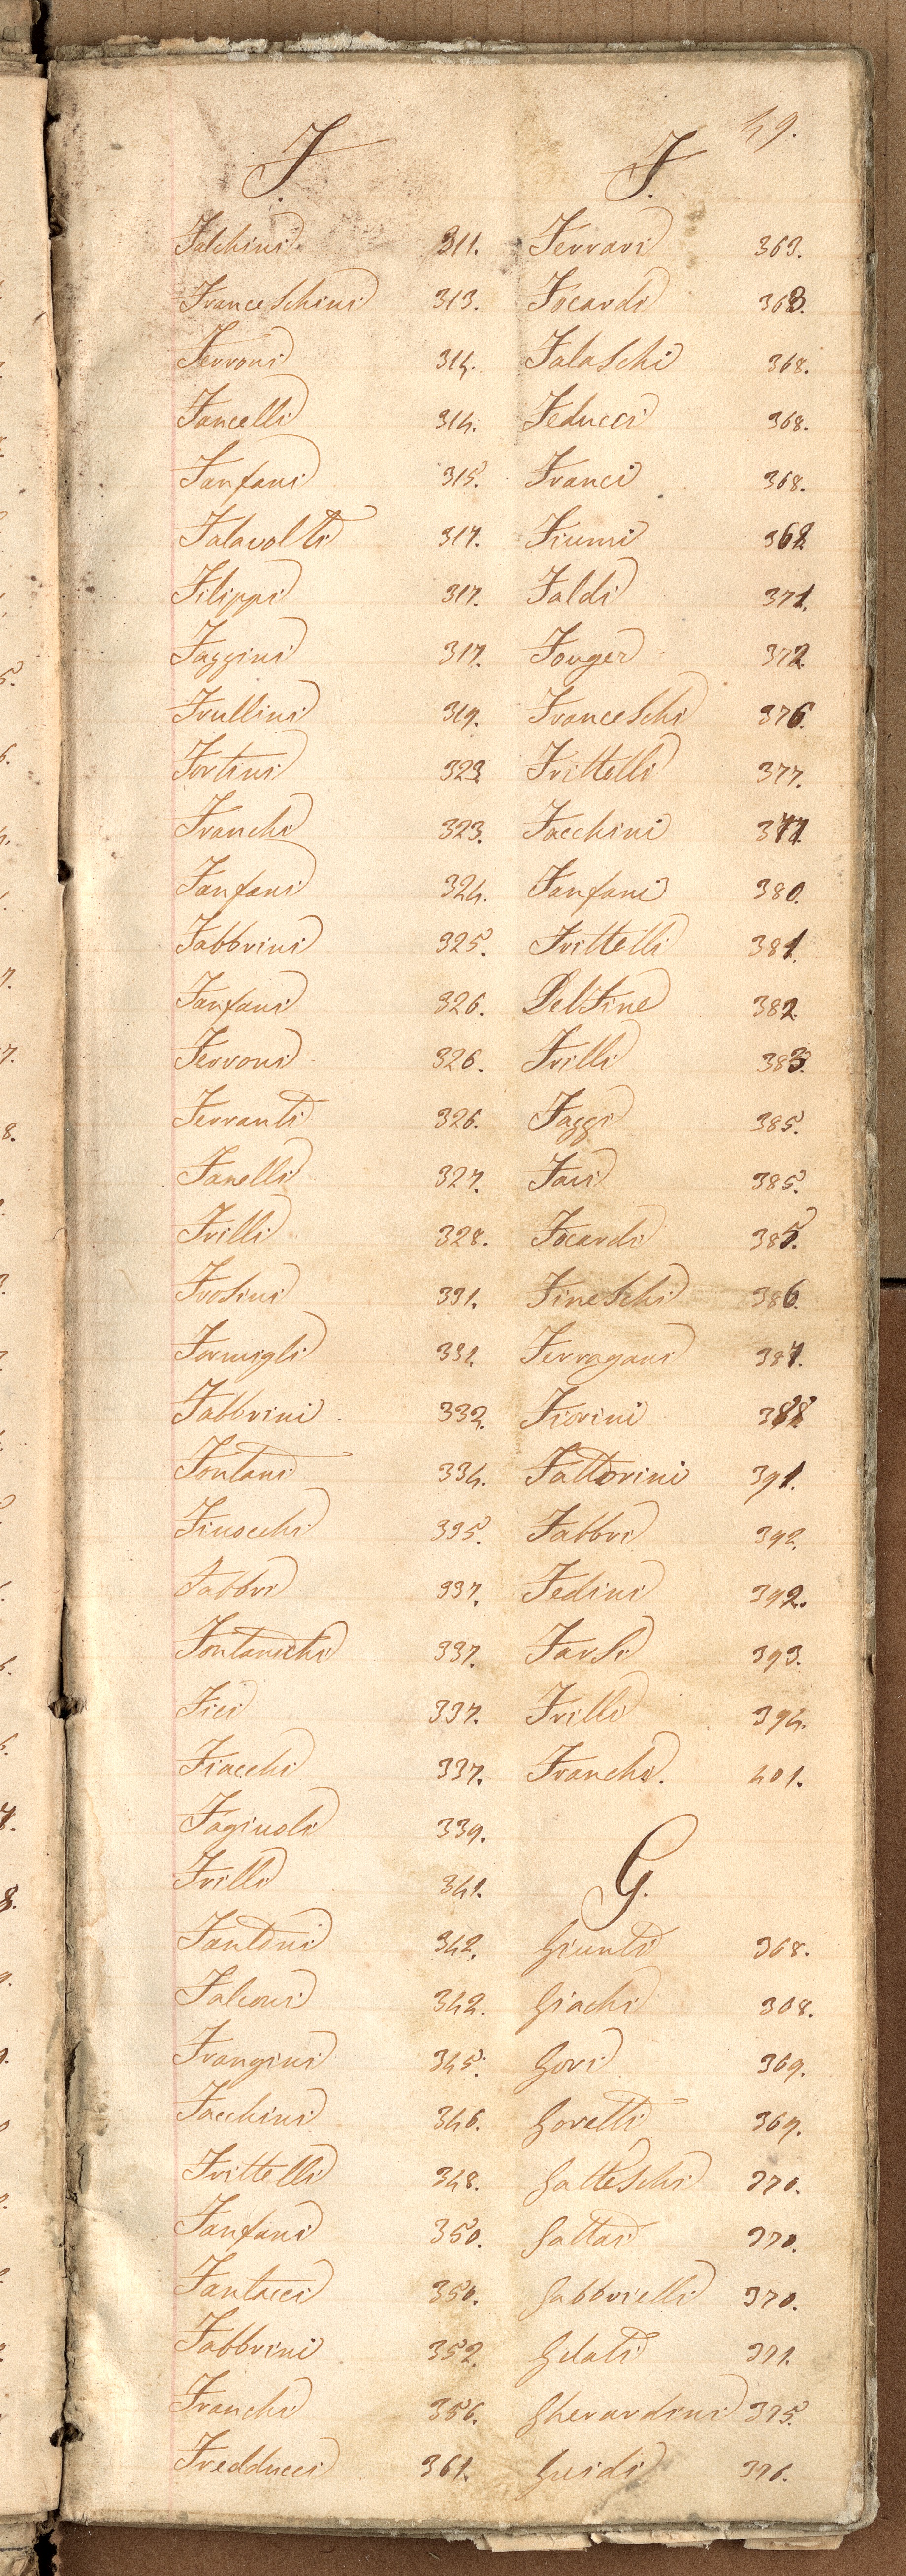 49.
F.
Falchini 311.
Franceschini 313.
Ferroni 314.
Fancelli 314.
Fanfani 315.
Falavolti 317.
Filippi 317.
Faggini 317.
Frullini 319.
Fortini 323.
Franchi 323.
Fanfani 324.
Fabbrini 325.
Fanfani 326.
Ferroni 326.
Ferranti 326.
Fanelli 327.
Frilli 328.
Frosini 331.
Formigli 331.
Fabbrini 332.
Fontani 334.
Finocchi 335.
Fabbri 337.
Fontanichi 337.
Fici 337.
Fiacchi 337.
Faginoli 339.
Frilli 341.
Fantoni 342.
Falconi 342.
Frangini 345.
Facchini 346.
Frittelli 348.
Fanfani 350.
Fantacci 350.
Fabbrini 352.
Franchi 356.
Fredducci 361.
F.
Ferrari 363.
Focardi 363.
Falaschi 368.
Feducci 368.
Franci 368.
Fiumi
Faldi 371.
Fouger 372.
Franceschi 376.
Frittelli 377.
Facchini 377.
Fanfani 380.
Frittelli 381.
Del Fine 382.
Frilli 383.
Faggi 385.
Fais 385.
Focardi 385.
Fineschi 386.
Ferragani 387.
Fiorini 388
Fattorini 391.
Fabbri 392.
Fedini 392.
Farsi 393.
Frilli 394.
Franchi. 401.
G.
Giunti 368.
Giachi 308.
Gori 369.
Goretti 369.
Gatteschi 370.
Gattai 370.
Gabbrielli 370.
Gelati 371.
Gherardini 375.
Guidi 376.